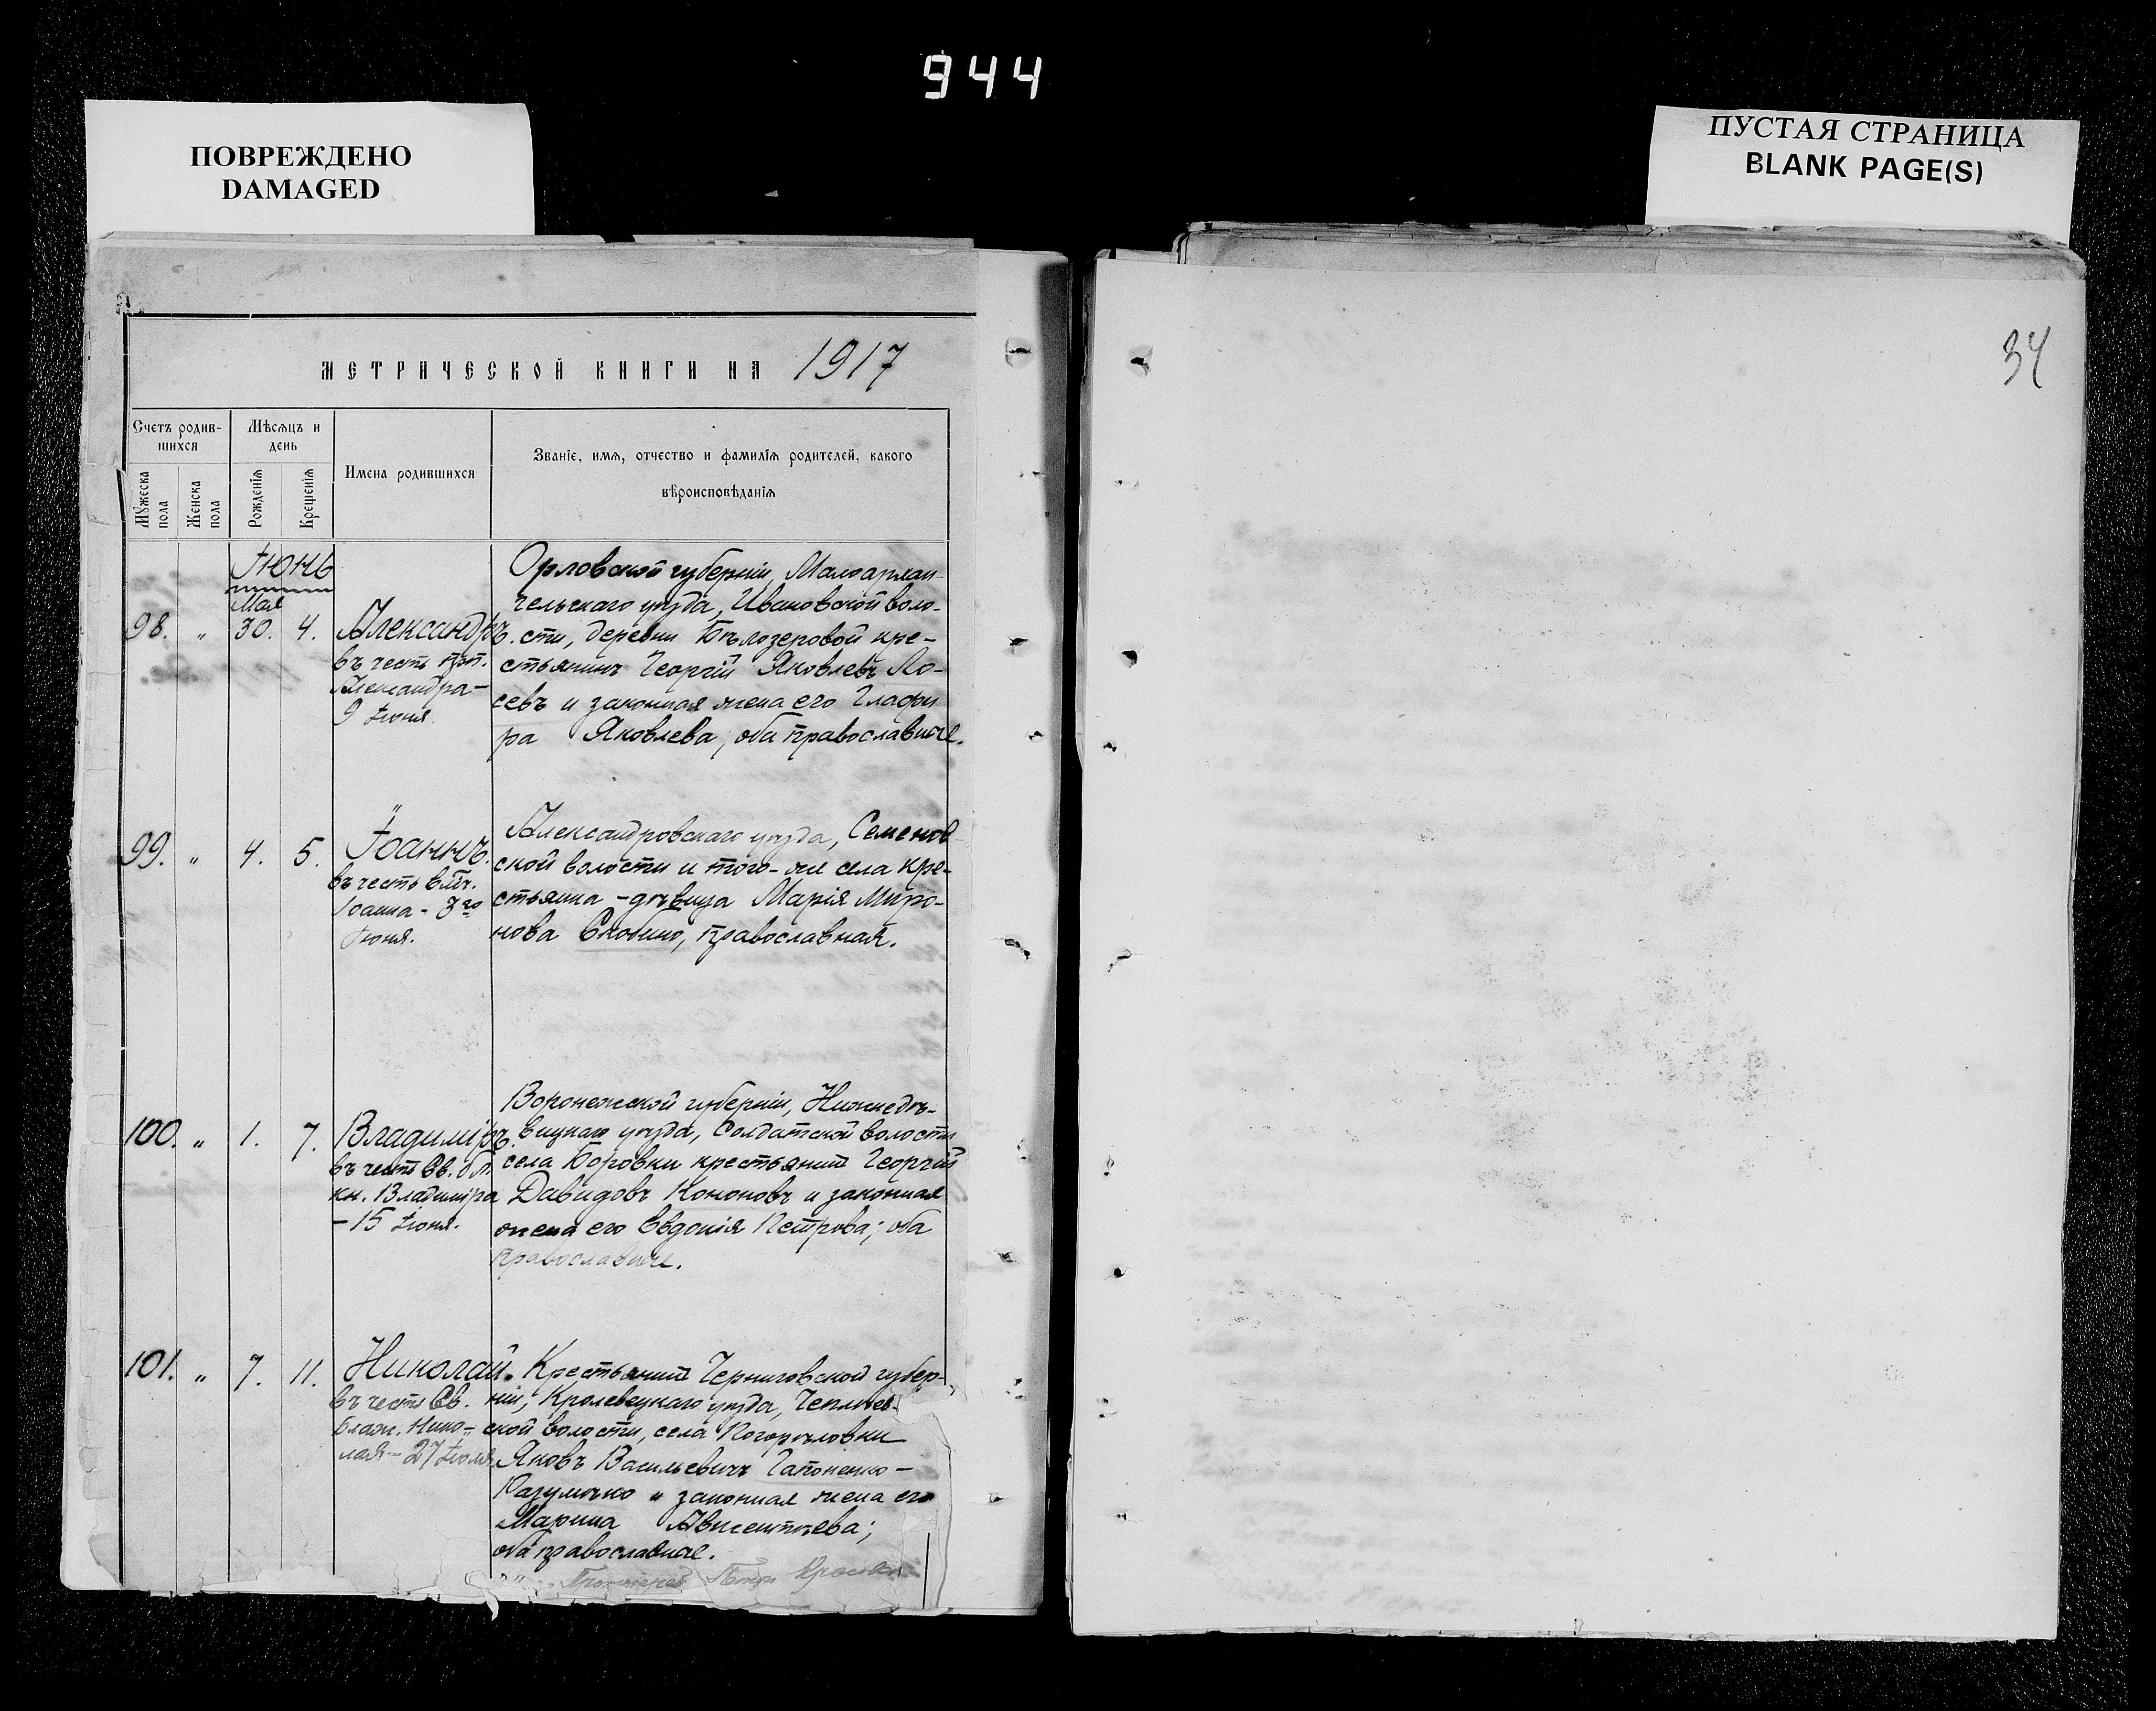 944
ПОВРЕЖДЕНО
DAMAGED
ПУСТАЯ СТРАНИЦА
BLANK PAGE(S)
34
МЕТРИЧЕСКОЙ КНИГИ НА 1917
Счетъ родив-
шихся
Мѣсяцъ и
день
Имена родившихся
Званіе, имя, отчество и фамилія родителей, какого
вѣроисповѣданія
Мужеска
пола
Женска
пола
Рожденія
Крещенія
Іюнь
Мая
98. " 30. 4. Александръ.
въ честь прп.
Александра-
9 Іюня.
Орловской губерніи, Малоархан-
гельскаго уѣзда, Ивановской воло-
сти, деревни Бѣлозеровой кре-
стьянинъ Георгій Яковлевъ Ло-
севъ и законная жена его Глафи
ра Яковлева, оба православные.
99. " 4. 5. Іоаннъ.
въ честь вмч.
Іоанна - 3го
Іюня.
Александровскаго уѣзда, Семенов
ской волости и того-же села кре-
стьянка - дѣвица Марія Миро-
нова православная.
100. " 1. 7. Владиміръ.
въ честь Св. бл.
кн. Владиміра
- 15 Іюня.
Воронежской губерніи, Нижнедѣ-
вицкаго уѣзда, Солдатской волости
села Боровки крестьянинъ Георгій
Давидовъ Кононовъ и законная
жена его Евдокія Петрова; оба
православные.
101. " 7. 11. Николай.
въ честь Св.
блаж. Нико-
лая - 27 Іюля.
Крестьянинъ Черниговской губер-
ніи, Кролевецкаго уѣзда,
ской волости, села Погорѣловки
Яковъ Васильевичъ Гапоненко-
и законная жена его
Марина Авксентьева;
оба православные.
Протоіерей Петръ